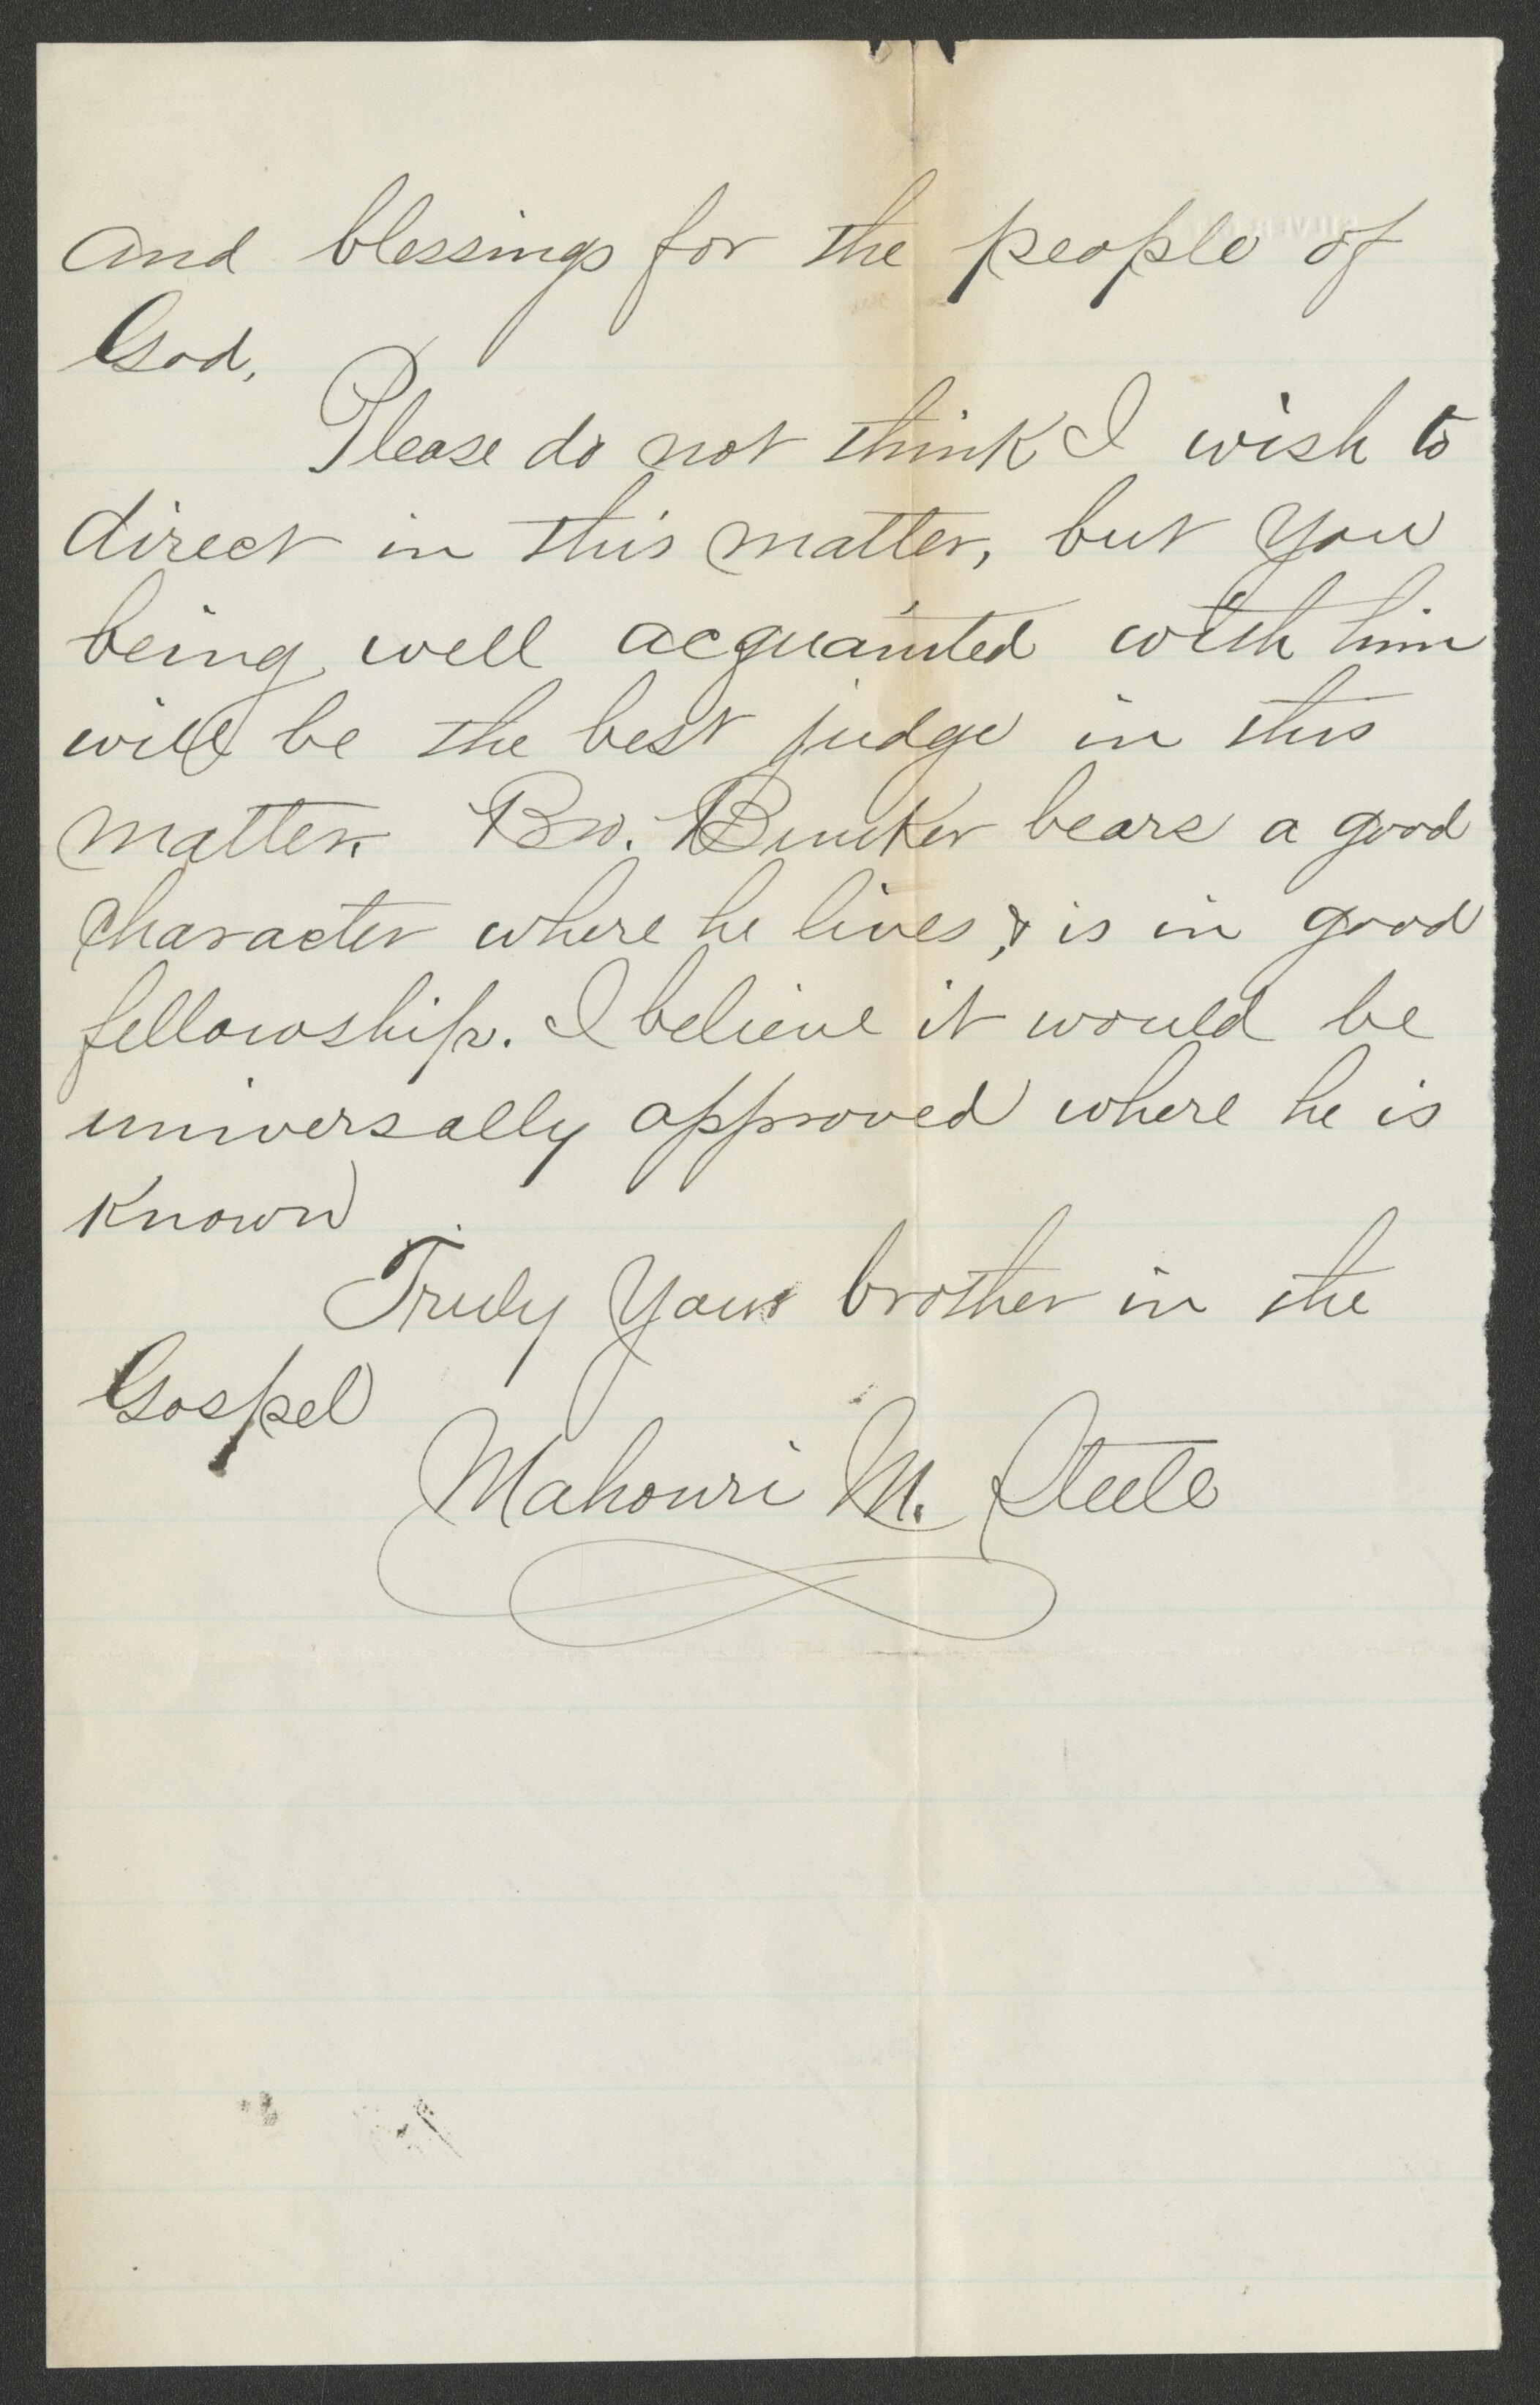 and blessings for the people of
God,
Please do not think I wish to
direct in this matter, but you
being well acquainted with him
will be the best judge in this
matter. Bro. Bunker bears a good
character where he lives, & is in good
fellowship. I believe it would be
universally approved where he is
known
Truly Your brother in the
Gospel
Mahonri M. Steele